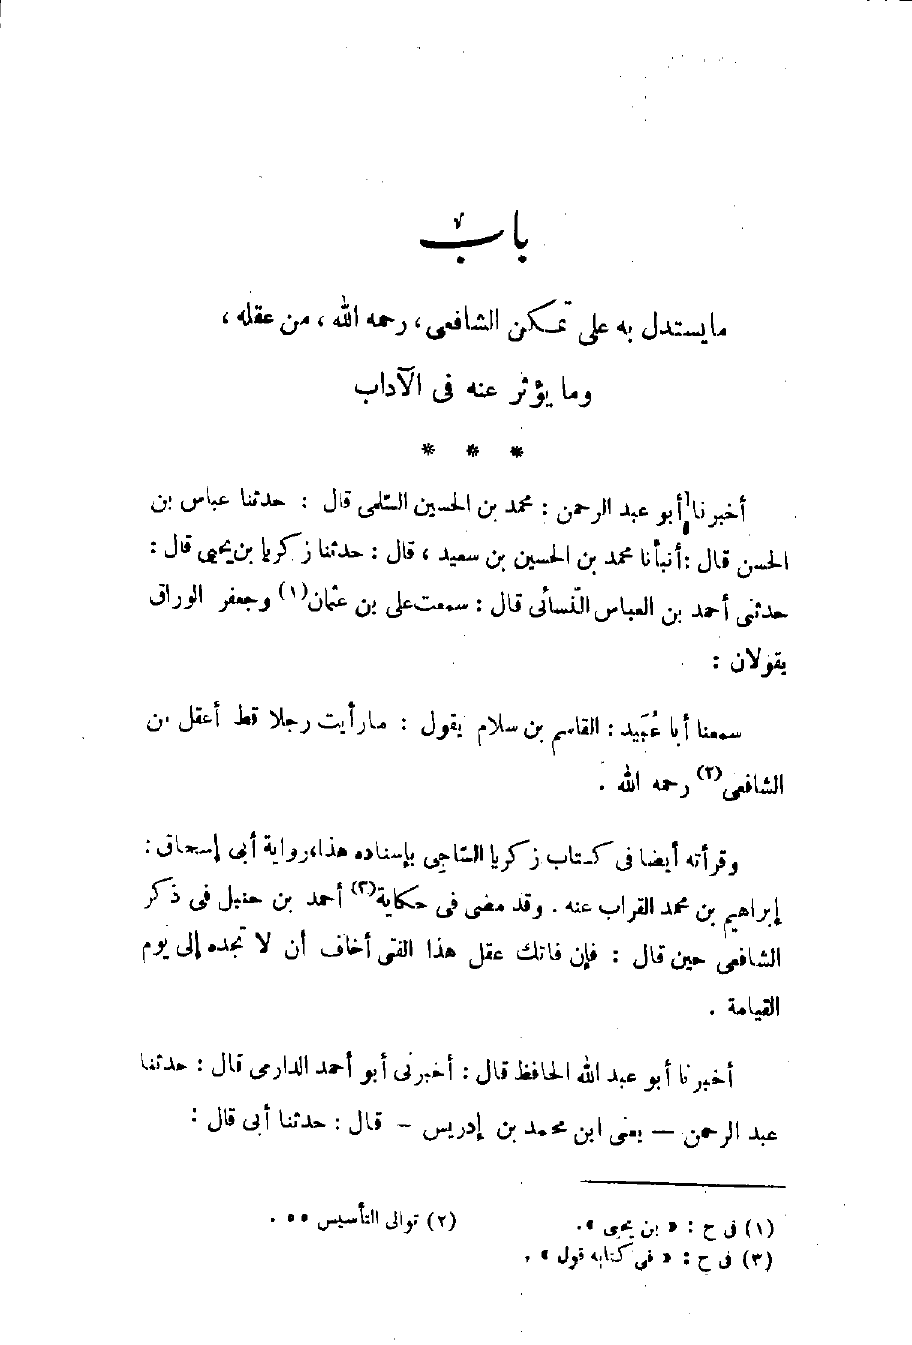 باب
ما يستدل به على تمكن الشافعى، رحمه الله، من عقله،
وما يؤثر عنه فى الآداب
* * *
أخبرنا أبو عبد الرحمن : محمد بن الحسين السّلمى قال : حدثنا عباس بن
الحسن قال : أنبأنا محمد بن الحسين بن سعيد ، قال : حدثنا زكريا بن يحيى قال :
حدثنى أحمد بن العباس النّسائى قال : سمعت على بن عثمان(١) وجعفر الوراق
يقولان :
سمعنا أبا عُبَيد : القاسم بن سلام يقول : ما رأيت رجلا قط أعقل من
الشافعى(٢) رحمه الله .
وقرأته أيضا فى كتاب زكريا السّاجى بإسناده هذا، رواية أبى إسحاق :
إبراهيم بن محمد القراب عنه . وقد مضى فى حكاية(٣) أحمد بن حنبل فى ذكر
الشافعى حين قال : فإن فاتك عقل هذا الفتى أخاف أن لا تجده إلى يوم
القيامة .
أخبرنا أبو عبد الله الحافظ قال : أخبرنى أبو أحمد الدارمى قال : حدثنا
عبد الرحمن — يعنى ابن محمد بن إدريس – قال : حدثنا أبى قال :
(١) فى ح : « بن يحيى ». (٢) توالى التأسيس ٥٥ .
(٣) فى ح : « فى كتابه قول » .